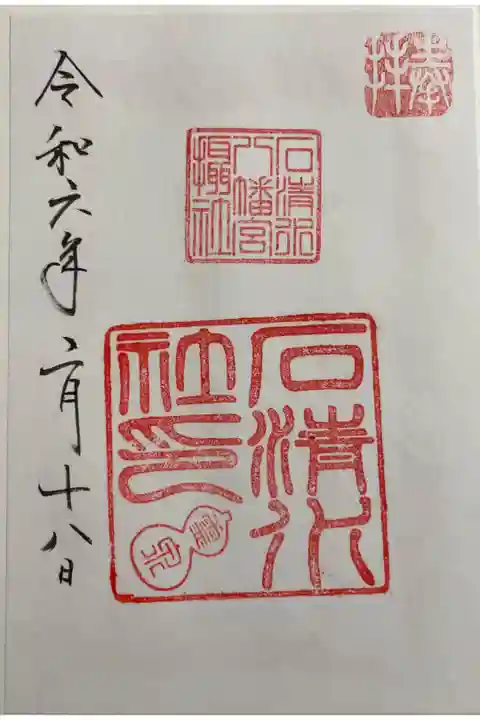 奉拝
石清水
八幡宮
摂社
石清水
社印
霊泉
令和六年二月十八日